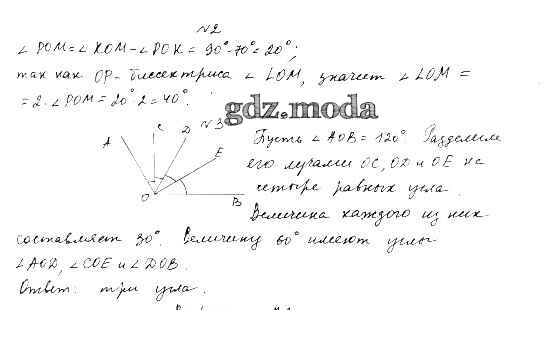 №2
∠ POM = ∠ KOM - ∠ POK = 90° - 70° = 20°;
так как OP - биссектриса ∠ LOM, значит ∠ LOM =
= 2 · ∠ POM = 20° · 2 = 40°.
gdz.moda
№3
A C D E O B
Пусть ∠ AOB = 120° Разделим
его лучами OC, OD и OE на
четыре равных угла.
Величина каждого из них
составляет 30°. Величину 60° имеют углы
∠AOD, ∠COE и ∠DOB.
Ответ: три угла.